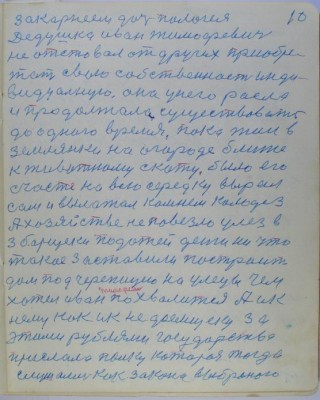 10
закарнеем доч пологея
Дедушка иван тимофевич
не отстовал от других приобре-
тст свою собственност инди-
видуалную. она унего расла
и продолжала существовать
до одного время, пока жил в
землянки на огороде ближе
к животному скоту, было его
счастя на всю середку вырел
сам и выматал камнем колодез
А хозяйстве не повезло улез в
3 банцеки под ожей денги ни что
такое заставили построит
дом под черепицию на улецы чем
хотел иван похвалится А ик
нему как ик не доемщику за
этими рублями государства
прислала пошку которая тогда
считали как закона выбраного